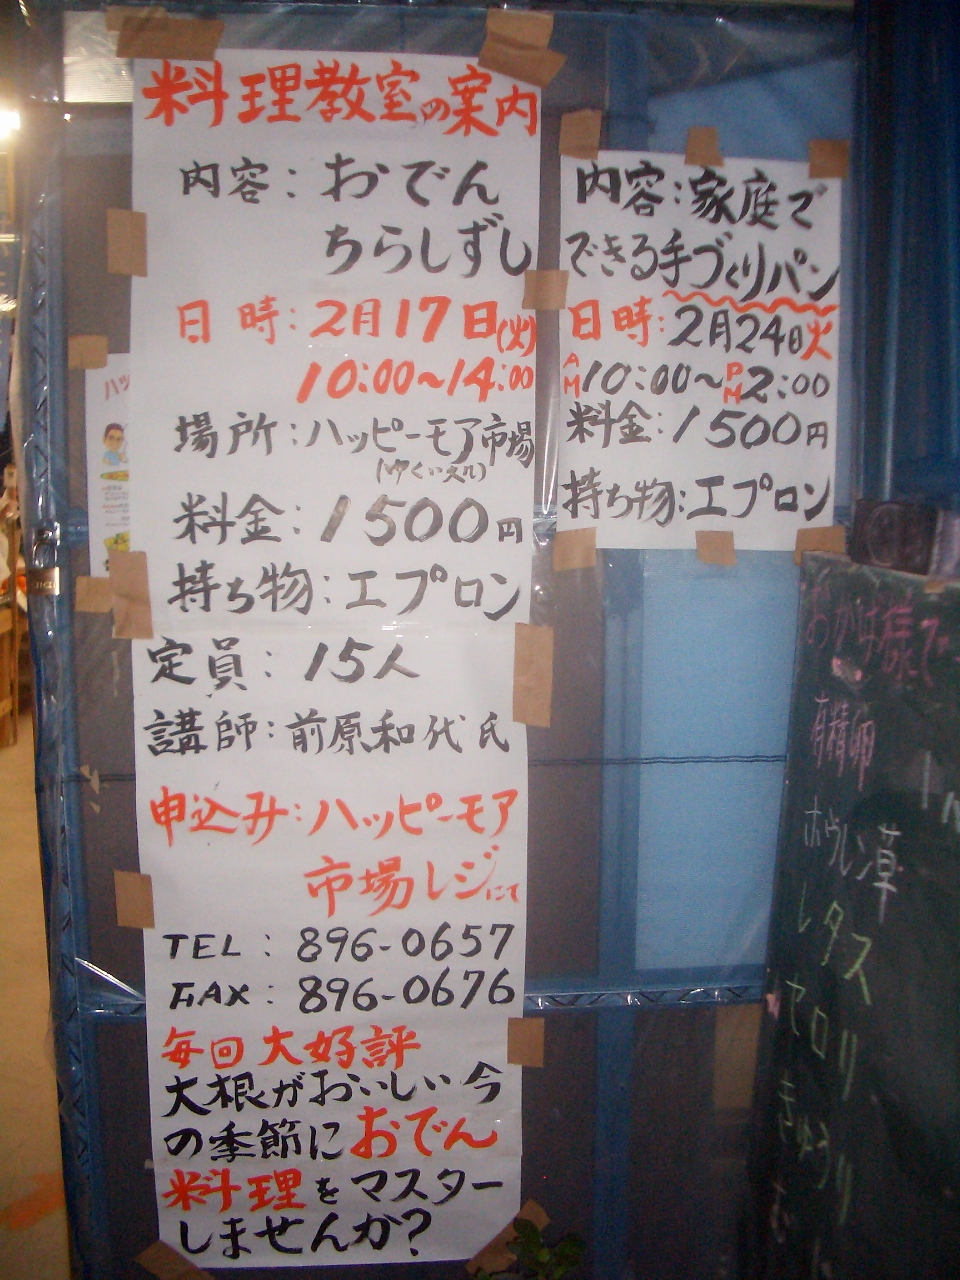 料理教室の案内
内容：おでん
ちらしずし
日時：2月17日(火)
10:00〜14:00
場所：ハッピーモア市場
料金：1500円
持ち物：エプロン
定員：15人
講師：前原和代氏
申込み：ハッピーモア
市場レジにて
TEL：896-0657
FAX：896-0676
毎回大好評
大根がおいしい今
の季節におでん
料理をマスター
しませんか？
内容：家庭で
できる手づくりパン
日時：2月24日火
AM10:00〜PM2:00
料金：1500円
持ち物：エプロン
おかげ様で
有精卵
ホウレン草
レタス
セロリ
きゅうり
ハッ